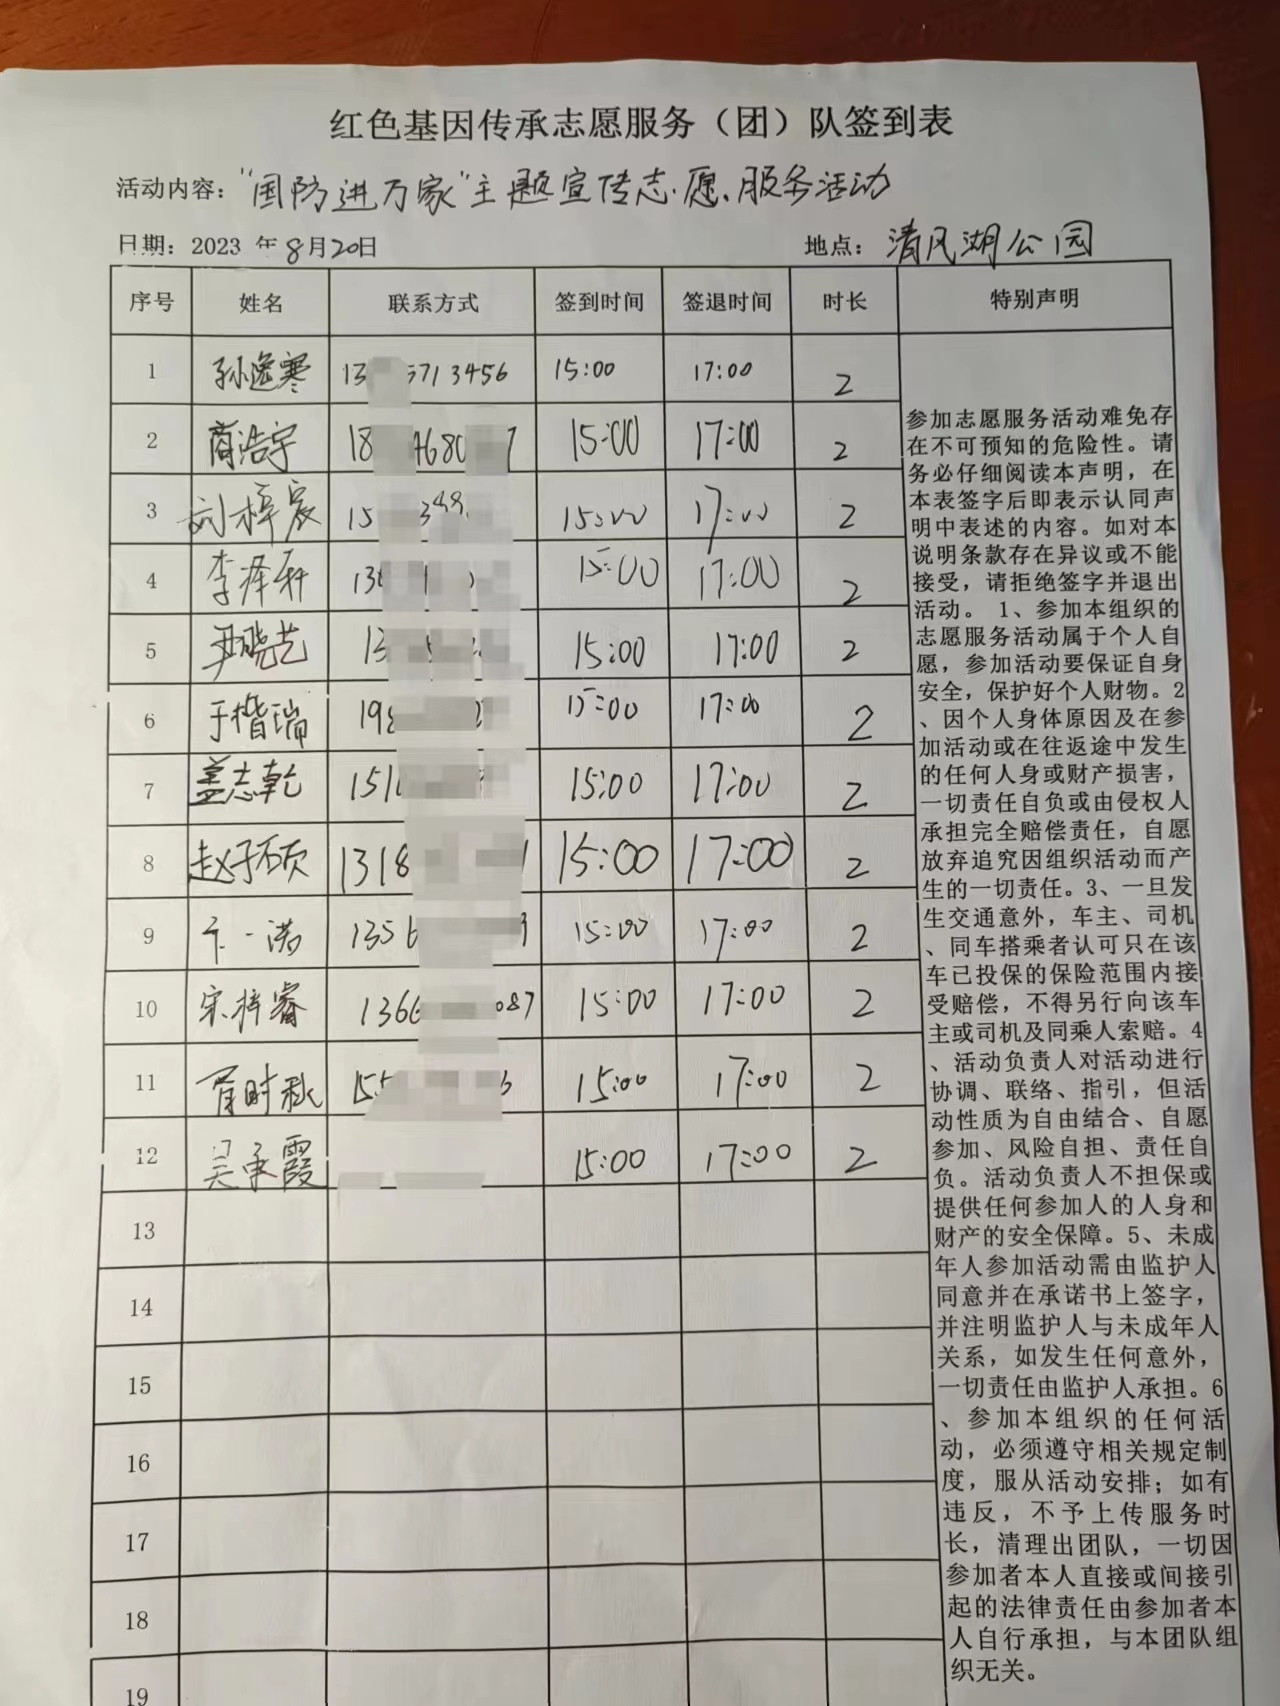 红色基因传承志愿服务（团）队签到表
活动内容："国防进万家"主题宣传志愿服务活动
日期：2023 年8月20日 地点：清风湖公园
序号 姓名 联系方式 签到时间 签退时间 时长 特别声明
1 孙逸寒 13 5713456 15:00 17:00 2
2 商浩宇 18 4680 7 15:00 17:00 2
3 刘梓宸 15 15:00 17:00 2
4 李泽轩 13 15:00 17:00 2
5 尹晓艺 13 15:00 17:00 2
6 于楷瑞 198 15:00 17:00 2
7 盖志乾 151 15:00 17:00 2
8 赵子硕 1318 1 15:00 17:00 2
9 一诺 1356 15:00 17:00 2
10 宋梓睿 1366 087 15:00 17:00 2
11 胥时秋 155 15:00 17:00 2
12 吴承霞 15:00 17:00 2
13
14
15
16
17
18
19
参加志愿服务活动难免存
在不可预知的危险性。请
务必仔细阅读本声明，在
本表签字后即表示认同声
明中表述的内容。如对本
说明条款存在异议或不能
接受，请拒绝签字并退出
活动。 1、参加本组织的
志愿服务活动属于个人自
愿，参加活动要保证自身
安全，保护好个人财物。2
、因个人身体原因及在参
加活动或在往返途中发生
的任何人身或财产损害，
一切责任自负或由侵权人
承担完全赔偿责任，自愿
放弃追究因组织活动而产
生的一切责任。3、一旦发
生交通意外，车主、司机
、同车搭乘者认可只在该
车已投保的保险范围内接
受赔偿，不得另行向该车
主或司机及同乘人索赔。4
、活动负责人对活动进行
协调、联络、指引，但活
动性质为自由结合、自愿
参加、风险自担、责任自
负。活动负责人不担保或
提供任何参加人的人身和
财产的安全保障。5、未成
年人参加活动需由监护人
同意并在承诺书上签字，
并注明监护人与未成年人
关系，如发生任何意外，
一切责任由监护人承担。6
、参加本组织的任何活
动，必须遵守相关规定制
度，服从活动安排；如有
违反，不予上传服务时
长，清理出团队，一切因
参加者本人直接或间接引
起的法律责任由参加者本
人自行承担，与本团队组
织无关。